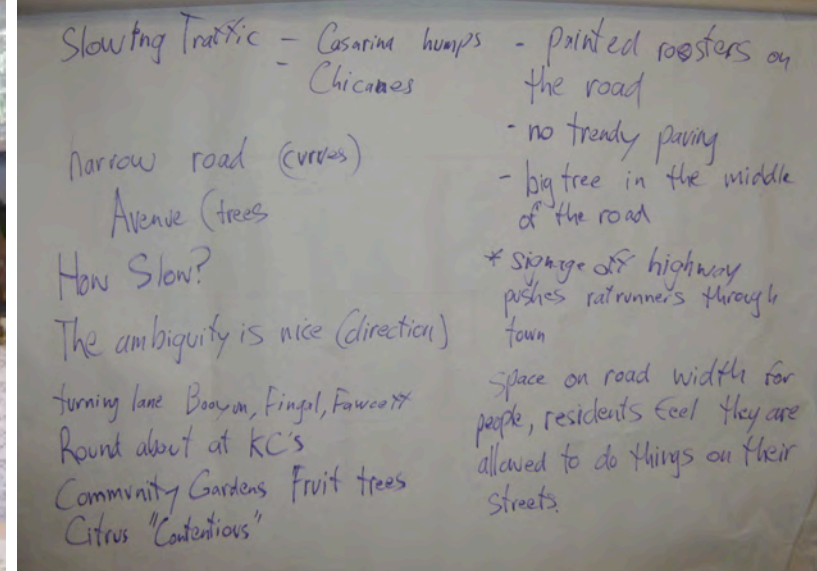 Slowing Traffic - Casarina humps
- Chicanes
narrow road (curves)
Avenue (trees
How Slow?
The ambiguity is nice (direction)
turning lane Booyun, Fingal, Fawcett
Round about at KC's
Community Gardens Fruit trees
Citrus "Contentious"
- painted roosters on
the road
- no trendy paving
- big tree in the middle
of the road
* signage off highway
pushes ratrunners through
town
space on road width for
people, residents feel they are
allowed to do things on their
streets.